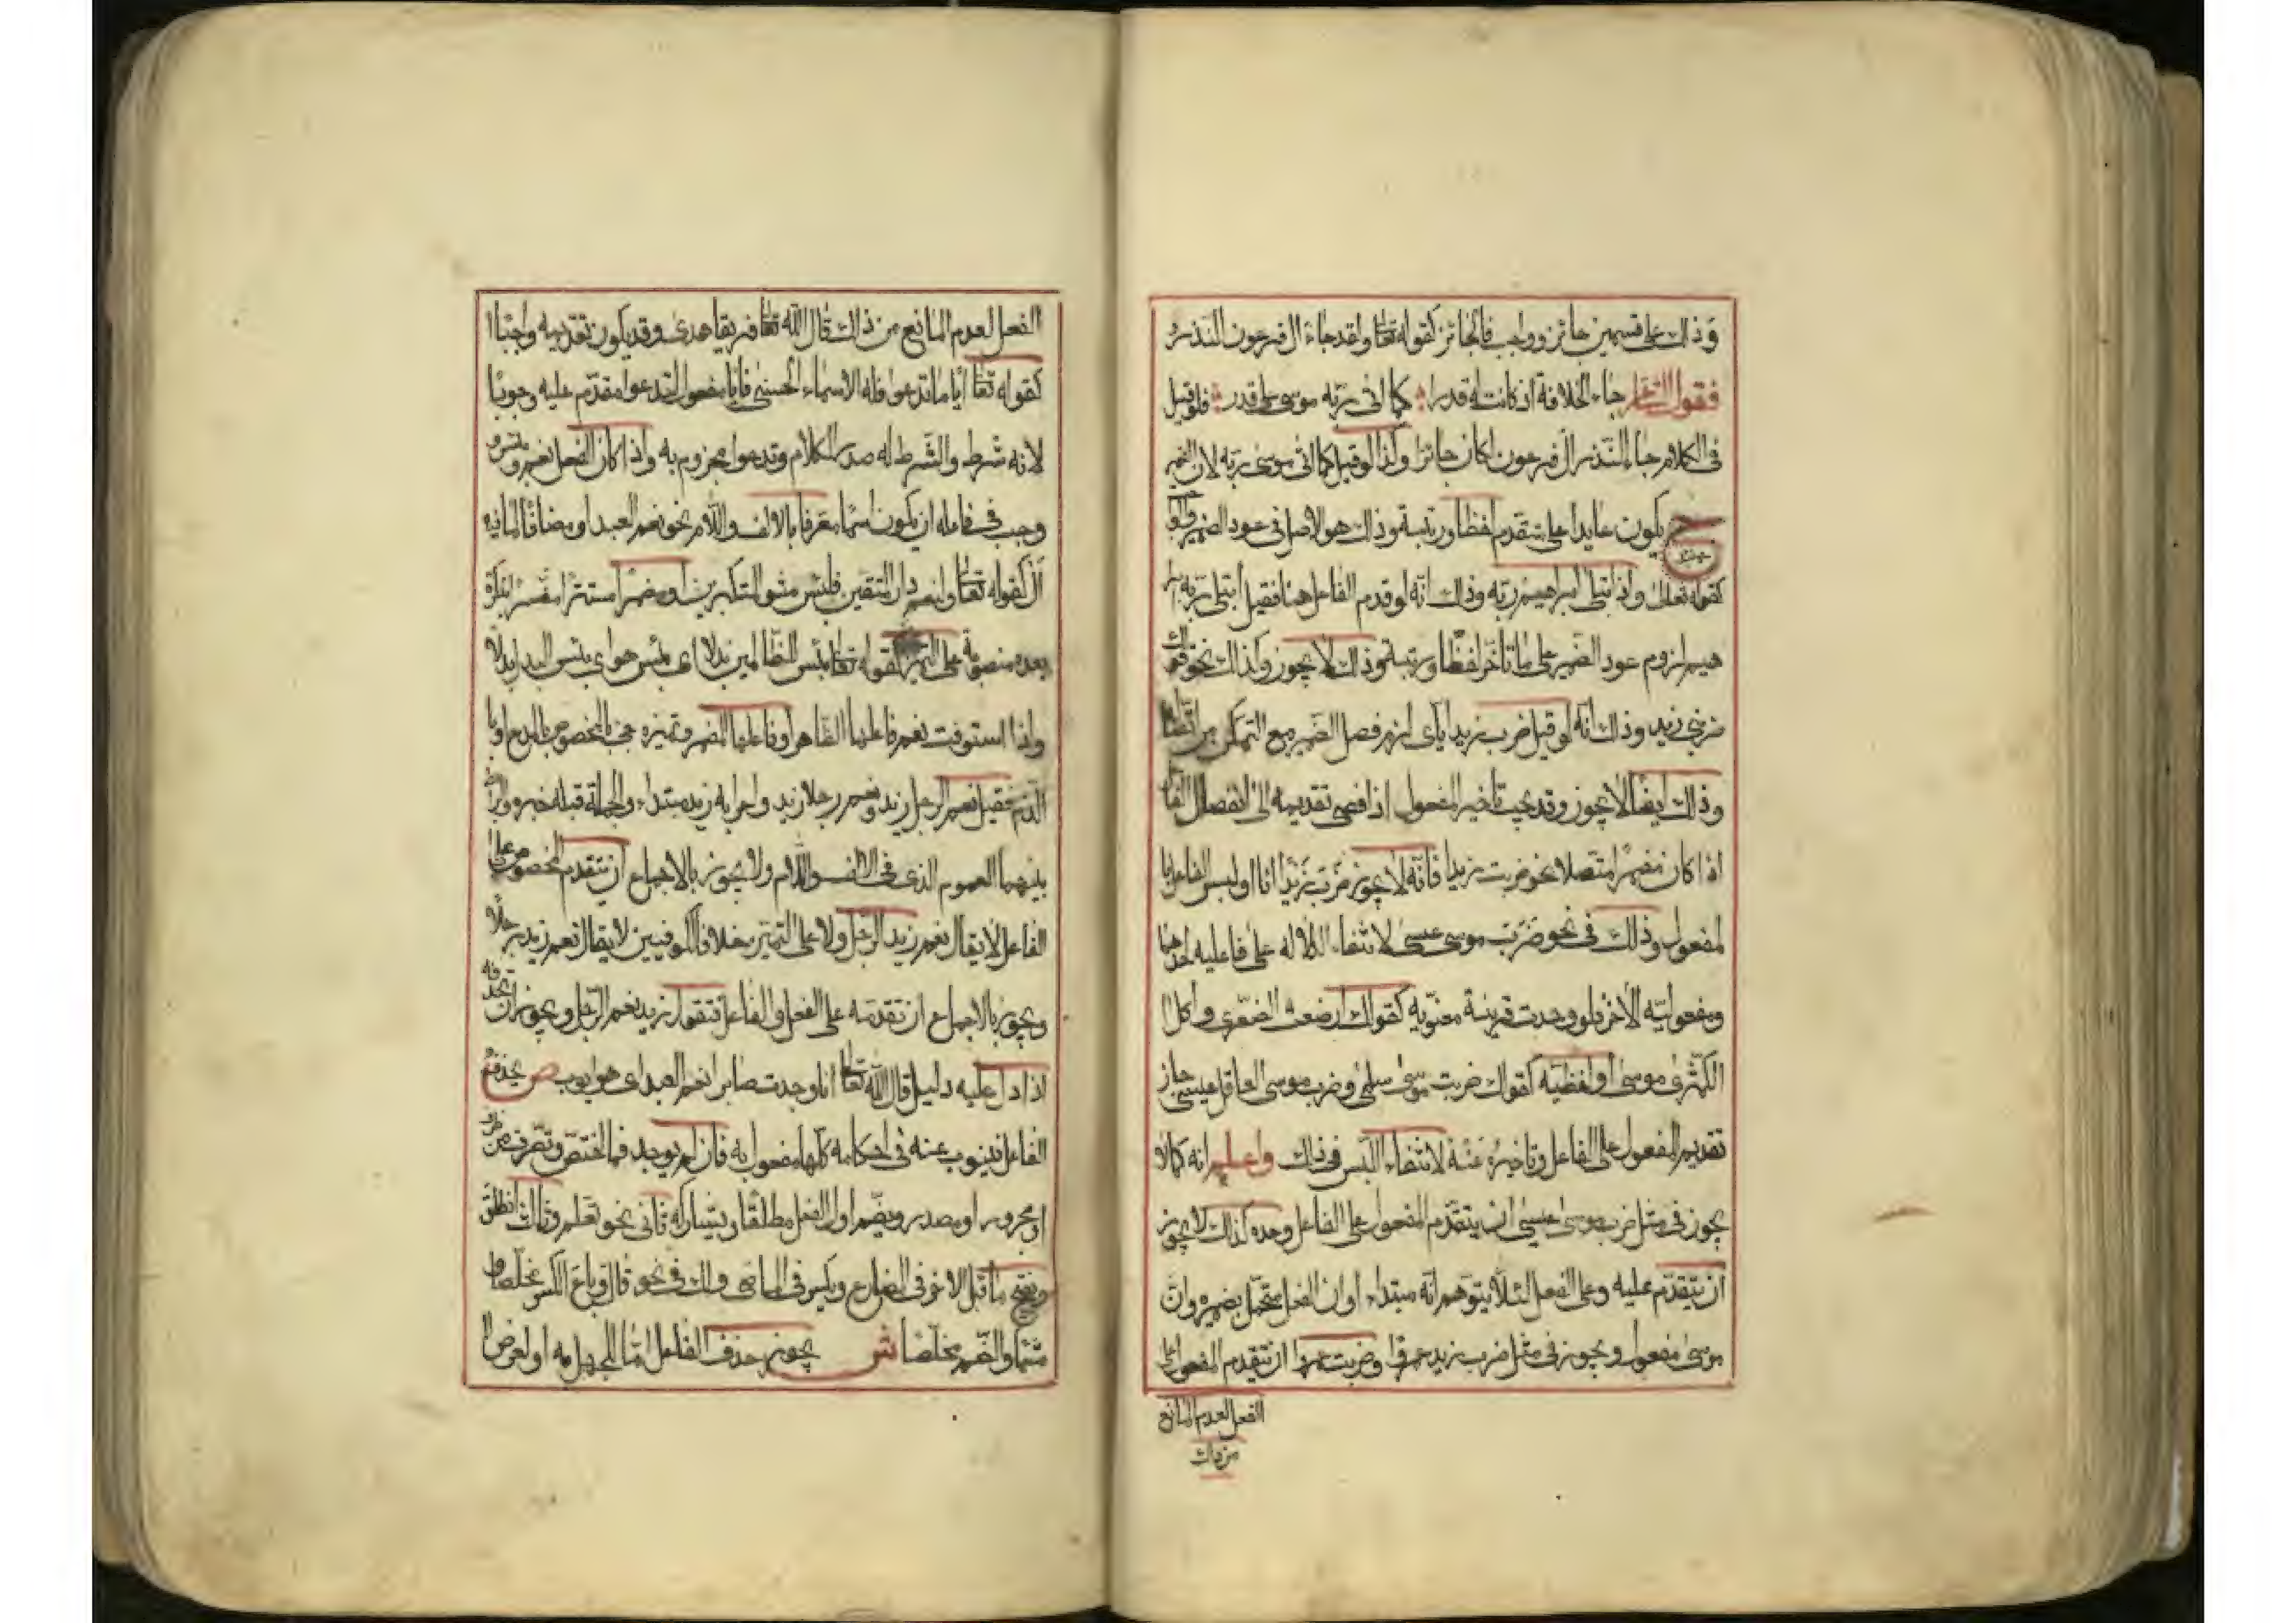 وذلك على قسمين جائز وواجب فالجائز كقوله تعا ولقد جاء ال فرعون النذر و
فقول الشاعر جاء الخلافة اذ كانت له قدرا كما اتى ربه موسى على قدر فلو قيل
فى الكلام جاء النذر ال فرعون لكان جائزا وكذا لو قيل كما اتى موسى ربه لان الضمير
ح يكون عايدا على متقدم لفظا ورتبة وذلك هو الاصل فى عود الضمير والواجب
كقوله تعالى واذ ابتلى ابراهيم ربه وذلك انه لو قدم الفاعل هنا فقيل ابتلى ربه ابر
هيم لزم عود الضمير على ما تأخر لفظا ورتبة وذلك لا يجوز وكذلك نحو قولك
ضربنى زيد وذلك انه لو قيل ضرب زيد اياى لزم فصل الضمير مع التمكن من اتصاله
وذلك ايضا لا يجوز وقد يجب تاخير المفعول اذ افضى تقديمه الى انفصال الفاعل
اذا كان ضميرا متصلا نحو ضربت زيدا فانه لا يجوز ضرب زيدا انا او لبس الفاعل با
لمفعول وذلك فى نحو ضرب موسى عيسى لانتفاء الدلاله على فاعليه احدهما
ومفعوليه الآخر فلو وجدت قرينة معنويه كقولك ارضعت الصغرى واكل
الكمثرى موسى او لفظيه كقولك ضربت موسى سلمى وضرب موسى العاقل عيسى جاز
تقديم المفعول على الفاعل وتاخيره عنه لانتفاء اللبس فى ذلك واعلم انه كما لا
يجوز فى مثل ضرب موسى عيسى ان يتقدم المفعول على الفاعل وحده كذلك لا يجوز
ان يتقدم عليه وعلى الفعل لئلا يتوهم انه مبتداء وان الفعل متحمل بضميره وان
موسى مفعول ويجوز فى مثل ضرب زيد عمرا وضربت عمرا ان يتقدم المفعول على
الفعل لعدم المانع
من ذلك
الفعل لعدم المانع من ذلك قال الله تعا فريقا هدى وقد يكون تقديمه واجبا
كقوله تعا ايا ما تدعوا فله الاسماء الحسنى فايا مفعول لتدعوا مقدم عليه وجوبا
لانه شرط والشرط له صدر الكلام وتدعوا مجزوم به واذا كان الفعل نعم وبئس
وجب فى فاعله ان يكون اسما معرفا بالالف واللام نحو نعم العبد او مضافا لما فيه
ال كقوله تعا ولنعم دار المتقين فلبئس مثوى المتكبرين او مضمرا مستترا مفسرا بنكرة
بعده منصوبة على التمييز كقوله تعا بئس للظالمين بدلا اى بئس هو اى بئس البدل بدلا
واذا استوفت نعم فاعلها الظاهر او فاعلها المضمر وتميزه جئ بالمخصوص بالمدح او با
لذم فقيل نعم الرجل زيد ونعم رجلا زيد واعرابه زيد مبتداء والجملة قبله خبر والرابط
بينهما العموم الذى فى الالف واللام ولا يجوز بالاجماع ان يتقدم المخصوص على
الفاعل لا يقال نعم زيد الرجل ولا على التميز خلافا للكوفيين لا يقال نعم زيد رجلا
ويجوز بالاجماع ان تقدمه على الفعل والفاعل فتقول زيد نعم الرجل ويجوز ان تحذفه
اذا دل عليه دليل قال الله تعا انا وجدناه صابرا نعم العبد اى هو ايوب ص يحذف
الفاعل فينوب عنه فى احكامه كلها مفعول به فان لم يوجد فما اختص وتصرف من ظرف
او مجرور او مصدر ويضم اول الفعل مطلقا ويشاركه ثانى نحو تعلم وثالث انطلق
ويفتح ما قبل الاخر فى المضارع ويكسر فى الماضى ولك فى نحو قال وباع الكسر مخلصا و
مشما والضم مخلصا ش يجوز حذف الفاعل اما للجهل به او لغرض